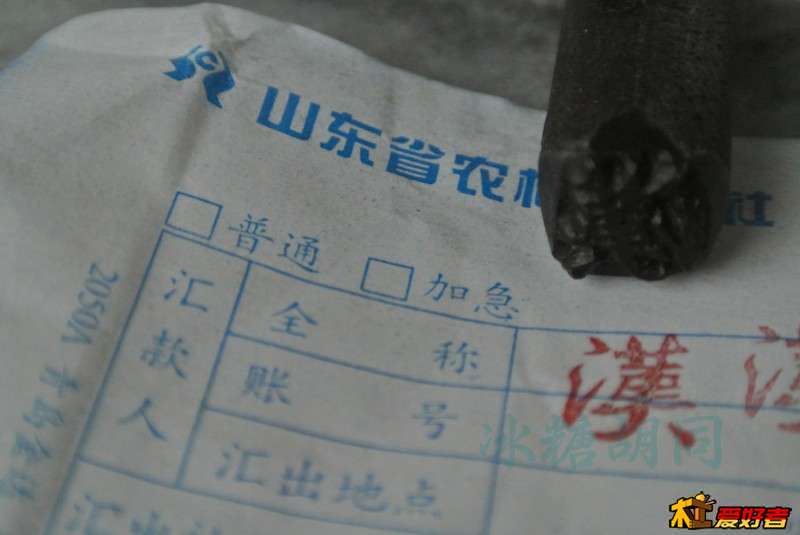 山东省农村 社
普通 加急
汇款人
全称
账号
汇出地点
漢
2050A 青岛金
冰糖胡同
杠爱好者